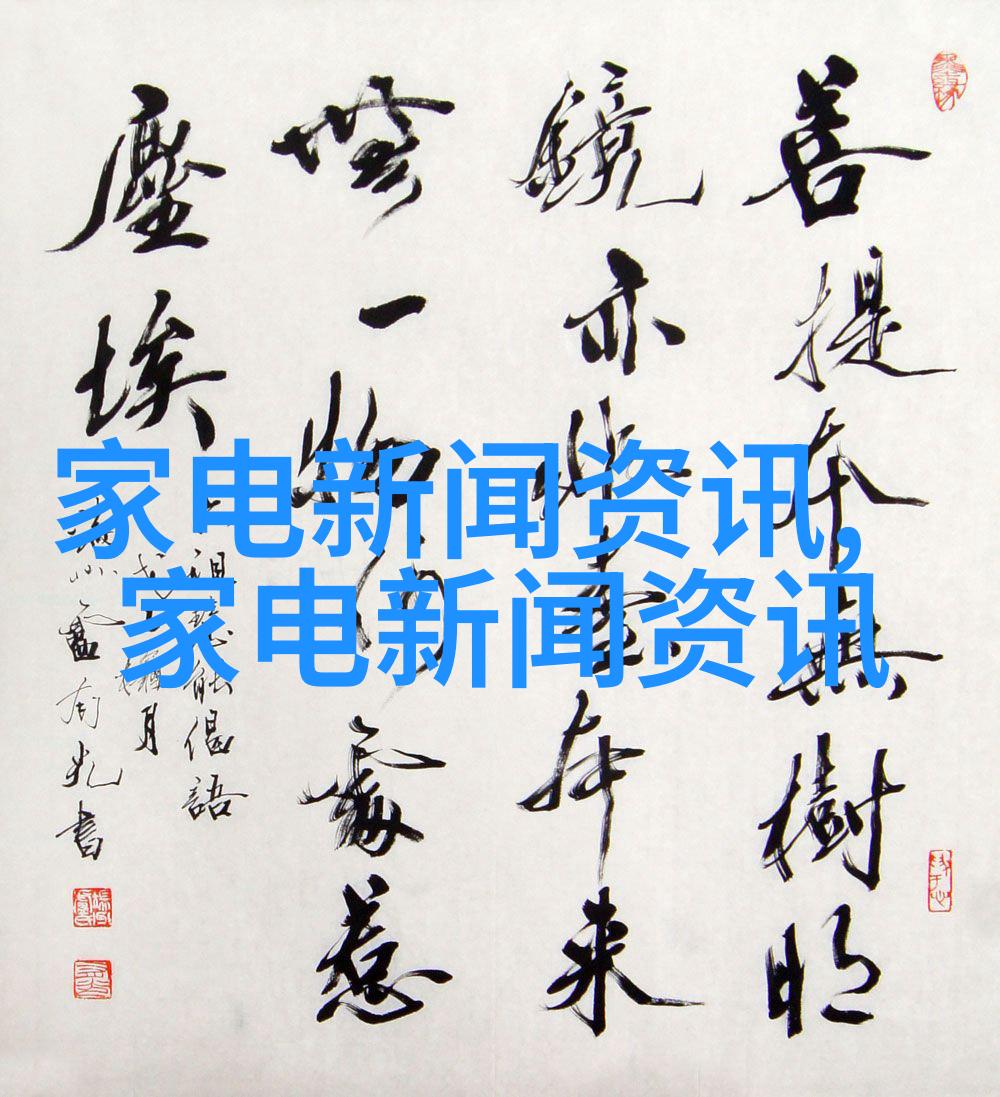 菩提本無樹明
鏡亦非臺本来
無一物何處惹
塵埃
六祖慧能偈語
月
盧有光書
家电新闻资讯,
家电新闻资讯